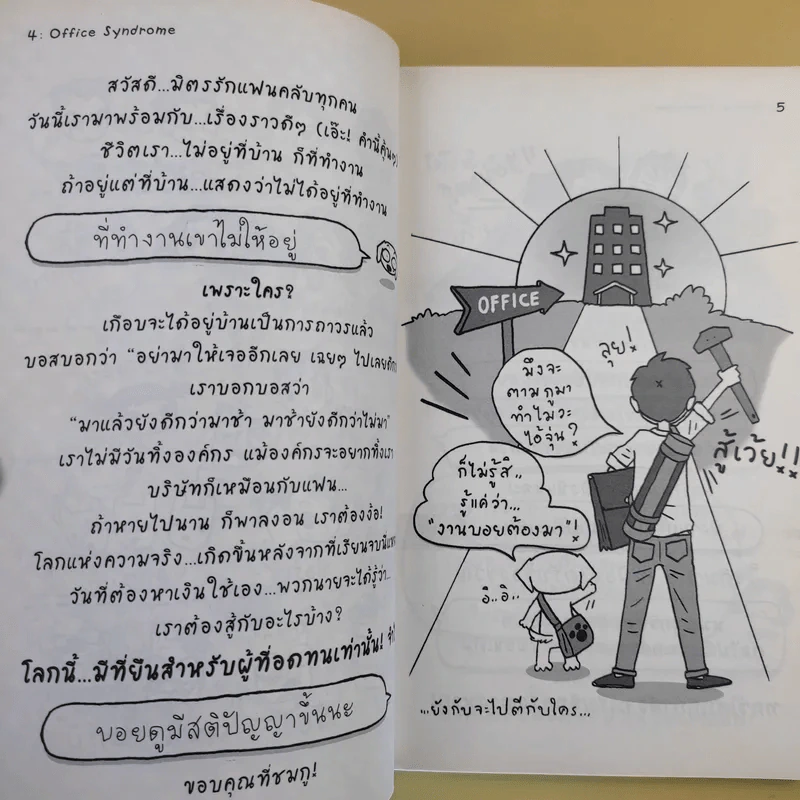 4: Office Syndrome
สวัสดี...มิตรรักแฟนคลับทุกคน
วันนี้เรามาพร้อมกับ...เรื่องราวดีๆ (เอ๊ะ! คำนี้คุ้นๆ)
ชีวิตเรา...ไม่อยู่ที่บ้าน ก็ที่ทำงาน
ถ้าอยู่แต่ที่บ้าน...แสดงว่าไม่ได้อยู่ที่ทำงาน
ที่ทำงานเขาไม่ให้อยู่
เพราะใคร?
เกือบจะได้อยู่บ้านเป็นการถาวรแล้ว
บอสบอกว่า “อย่ามาให้เจออีกเลย เฉยๆ ไปเลยดีก
เราบอกบอสว่า
“มาแล้วยังดีกว่ามาช้า มาช้ายังดีกว่าไม่มา”
เราไม่มีวันทิ้งองค์กร แม้องค์กรจะอยากทิ้งเรา
บริษัทก็เหมือนกับแฟน...
ถ้าหายไปนาน ก็พาลงอน เราต้องง้อ!
โลกแห่งความจริง...เกิดขึ้นหลังจากที่เรียนจบนี่แห
วันที่ต้องหาเงินใช้เอง...พวกนายจะได้รู้ว่า...
เราต้องสู้กับอะไรบ้าง?
โลกนี้...มีที่ยืนสำหรับผู้ที่อดทนเท่านั้น!
บอยดูมีสติปัญญาขึ้นนะ
ขอบคุณที่ชมกู!
5
OFFICE
ลุย!
มึงจะ
ตามกูมา
ทำไมวะ
ไอ้จุ่น?
สู้เว้ย!!
ก็ไม่รู้สิ..
รู้แค่ว่า...
“งานบอยต้องมา”!
อิ..อิ..
...ยังกับจะไปตีกับใคร...